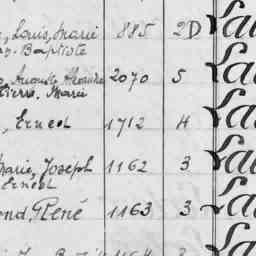 , Louis, Marie 885 2D La
n. Baptiste
, Auguste, 2070 5 La
Pierre. Marie
, Ernest 1712 4 La
Marie, Joseph 1162 3 La
Ernest
ond, René 1163 3 La
La